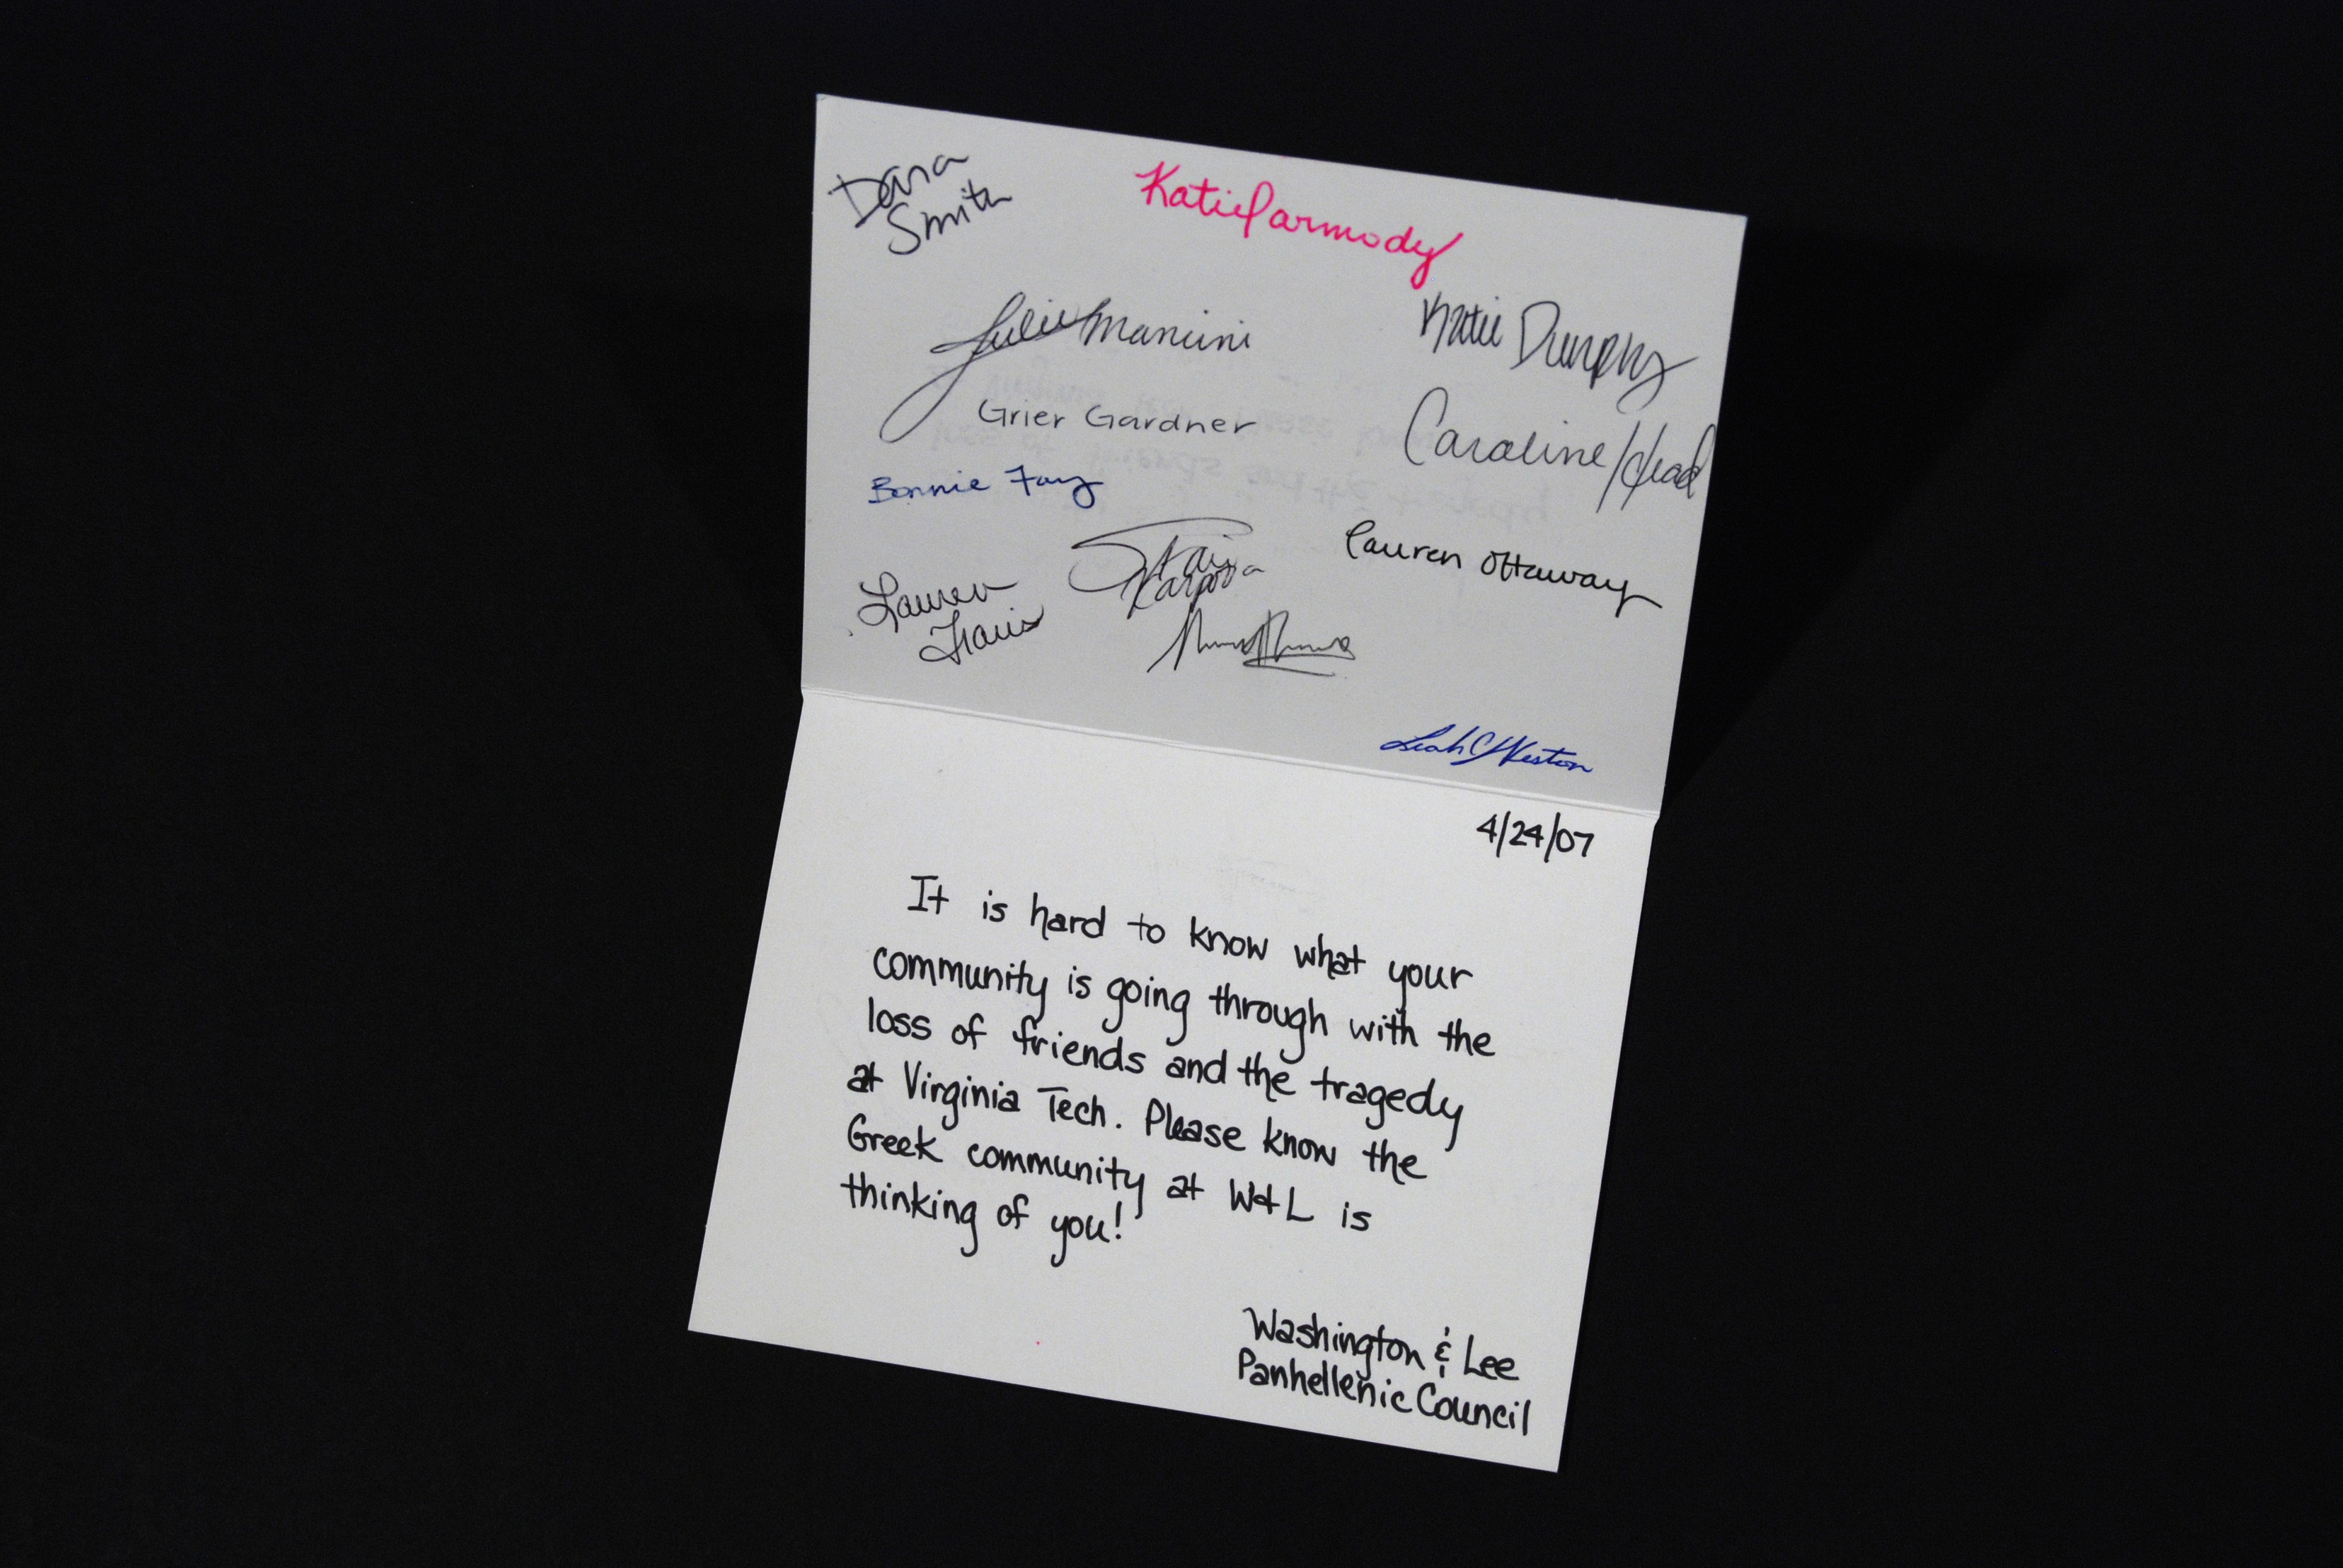 Dana
Smith
Julie Mancini
Katie Dunphy
Grier Gardner
Caroline Head
Bonnie Fay
Lauren Ottaway
Lauren
Travis
Leah C Weston
4/24/07
It is hard to know what your
community is going through with the
loss of friends and the tragedy
at Virginia Tech. Please know the
Greek community at W&L is
thinking of you!
Washington & Lee
Panhellenic Council